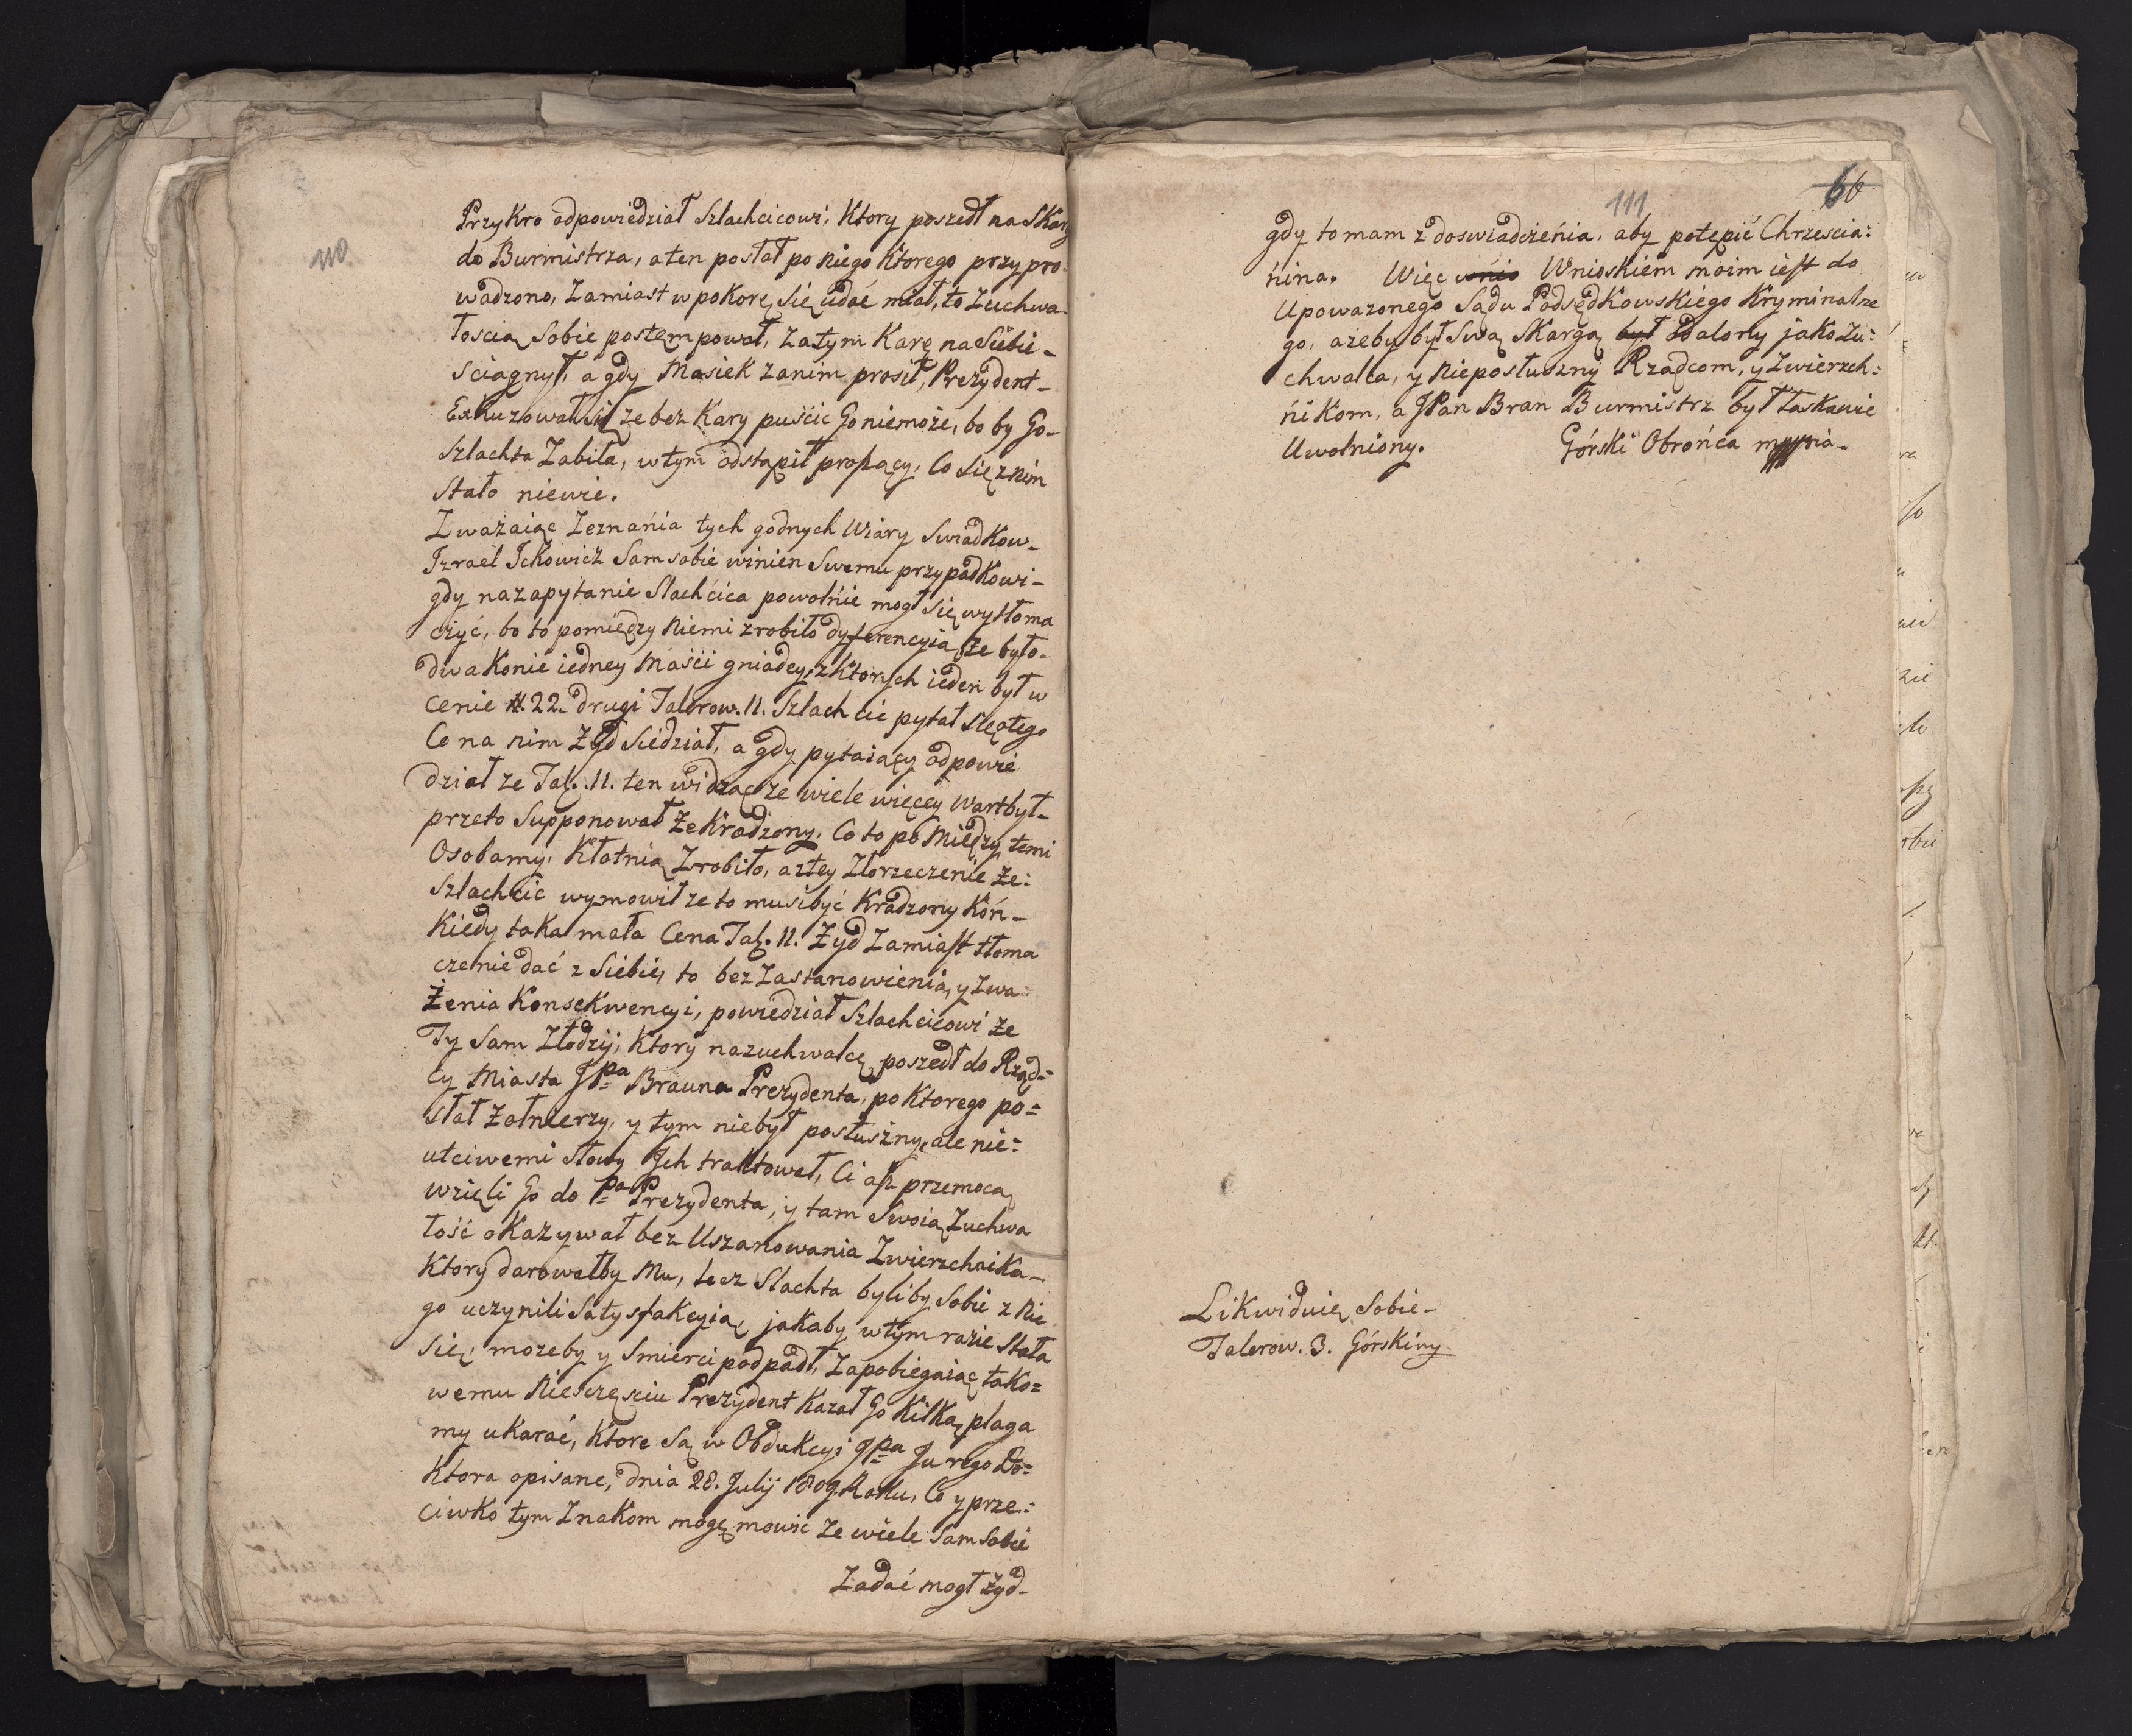 110.
Przykro odpowiedział Szlachcicowi, Ktory poszedł na Skarg
do Burmistrza, a ten posłał po niego Ktorego przypro=
wadzono, Zamiast w pokorę Się udać miał, to Zuchwa=
łoscią Sobie postempował, Zatym Karę na Siebie –
Sciągnył, a gdy Masiek zanim prosił, Prezydent –
Exkuzował Się ze bez Kary puścic Go niemoże, bo by Go –
Szlachta Zabiła, w tym odstąpił proszący, Co Się z nim
Stało niewie.
Zważaiąc Zeznania tych godnych Wiary Swiadkow –
Izrael Ickowicz Sam sobie winien Swemu przypadkowi –
gdy na zapytanie Slachcica powolnie mogł Się wytłoma
czyć, bo to pomiędzy Niemi zrobiło dyferencyią Że było –
dwa Konie iedney Maści gniadey, z Ktorych ieden był w
cenie #. 22. drugi Talerow. 11. Szlachcic pytał Się o tego
Co na nim Żyd Siedział, a gdy pytaiący odpowie
dział ze Tal. 11. ten widząc ze wiele więcey wart był –
przeto Supponował Że Kradzony. Co to po Między temi
Osobamy Kłotnią Zrobiło, a z tey Złorzeczenie Że:
Szlachcic wymowił ze to musi być Kradzony Koń –
Kiedy taka mała Cena Tal. 11. Żyd Zamiast tłoma
czenie dać z Siebie, to bez Zastanowienia, y Zwa=
Żenia Konsekwencyi, powiedział Szlachcicowi Że
Ty Sam Złodzij, Ktory na zuchwalcę poszedł do Rząd=
cy Miasta JPa Brauna Prezydenta, po Ktorego po=
słał Żołnierzy, y tym niebył posłuszny, ale nie=
utciwemi słowy Jch traktował, Ci asz przemocą
wzieli Go do Pa Prezydenta, y tam Swoią Zuchwa
łość okazywał bez Uszanowania Zwierzchnika –
Ktory darowałby Mu, lecz Slachta byliby Sobie z Nie
go uczynili Satysfakcyią, jakaby w tym razie Stała
Się, mozeby y Smierci podpadł, Zapobiegaiąc tako=
wemu Niesczęsciu Prezydent Kazał Go Kilką plaga
my ukarać, Ktore Są w Obdukcyi JPa Jurego Do=
Ktora opisane, dnia 28. Julij 1809. Roku, Co y prze=
ciwko tym Znakom mogę mowic Ze wiele Sam Sobie
Zadać mogł Żyd –
111
66
gdy to mam z doswiadczenia, aby potępić Chrzescia=
nina. Więc wnio Wnioskiem moim iest do
Upowaznionego Sądu Podsędkowskiego Kryminalne
go, azeby był Swą Skargą był oddalony jako Zu=
chwalca, y Nieposłuszny Rządcom, y Zwierzch=
nikom, a JPan Bran Burmistrz był łaskawie
Uwolniony. Górski Obrońca
Likwiduię Sobie –
Talerow. 3. Górski